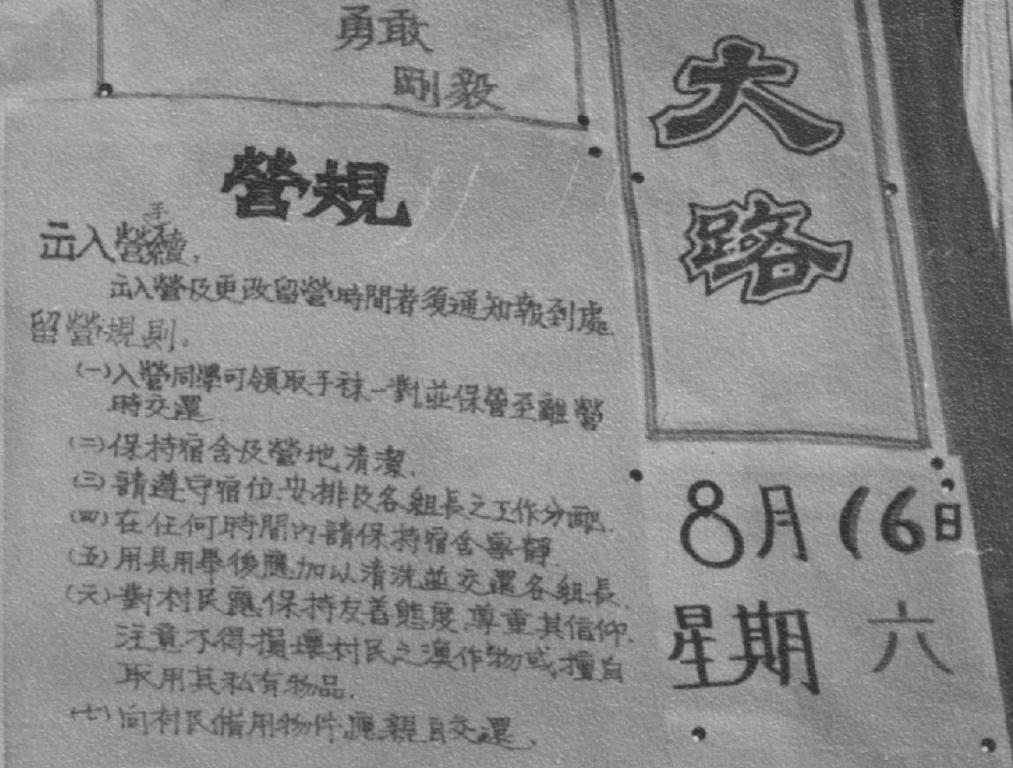 勇敢
剛毅
營規
出入營手續.
出入營及更改留營時間者須通知報到處.
留營規則.
(一)入營同學可領取手襪一對並保管至離營
時交還
(二)保持宿舍及營地清潔.
(三)請遵守宿位安排及各組長之工作分配.
(四)在任何時間內請保持宿舍寧靜.
(五)用具用畢後應加以清洗並交還各組長.
(六)對村民應保持友善態度,尊重其信仰.
注意不得損壞村民之農作物或擅自
取用其私有物品.
(七)向村民借用物件應親自交還.
大
路
8月16日
星期六